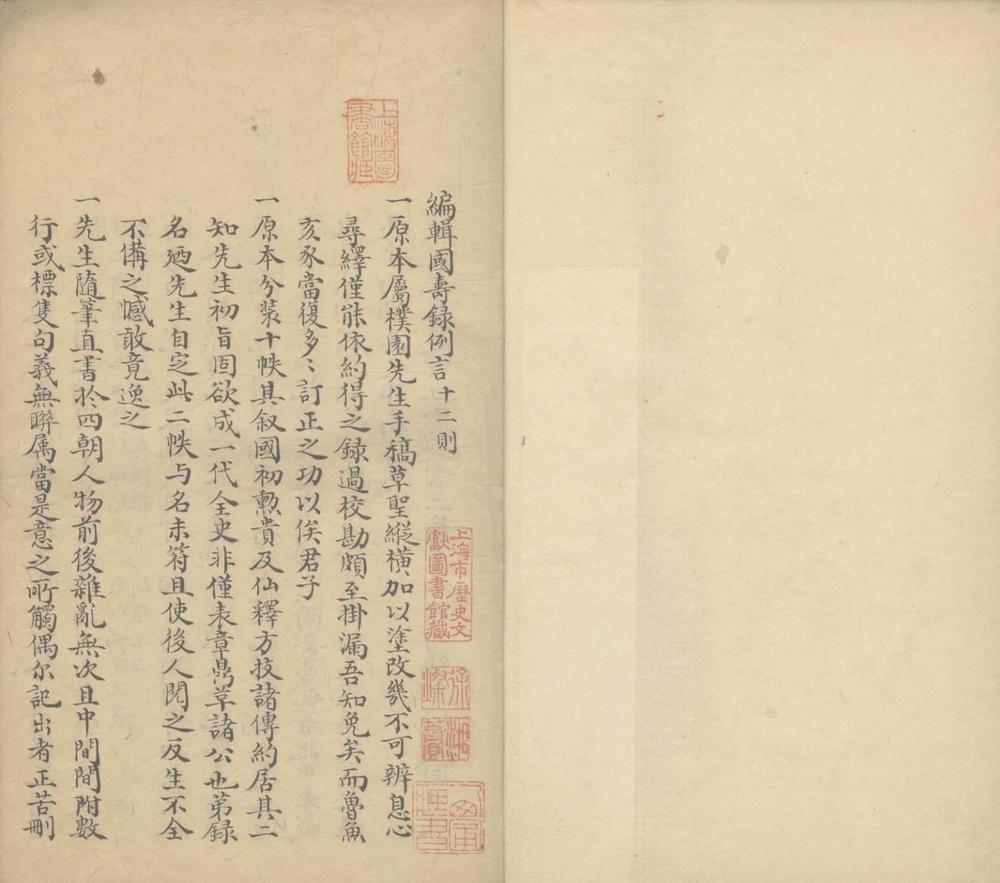 編輯國壽録例言十二則
一原本屬樸園先生手稿草聖縱横加以塗改幾不可辨息心
尋繹僅能依約得之録過校勘頗至掛漏吾知免矣而魯魚
亥豕當復多〻訂正之功以俟君子
一原本分装十帙具叙國初勲貴及仙釋方技諸傳約居其二
知先生初旨固欲成一代全史非僅表章勝草諸公也苐録
名廼先生自定此二帙与名未符且使後人閲之反生不全
不備之憾敢竟逸之
一先生隨筆直書於四朝人物前後雜亂無次且中間間附數
行或標隻句義無聯属當是意之所觸偶尔記出者正苦刪
上海圖書館藏
上海市歷史文獻圖書館藏